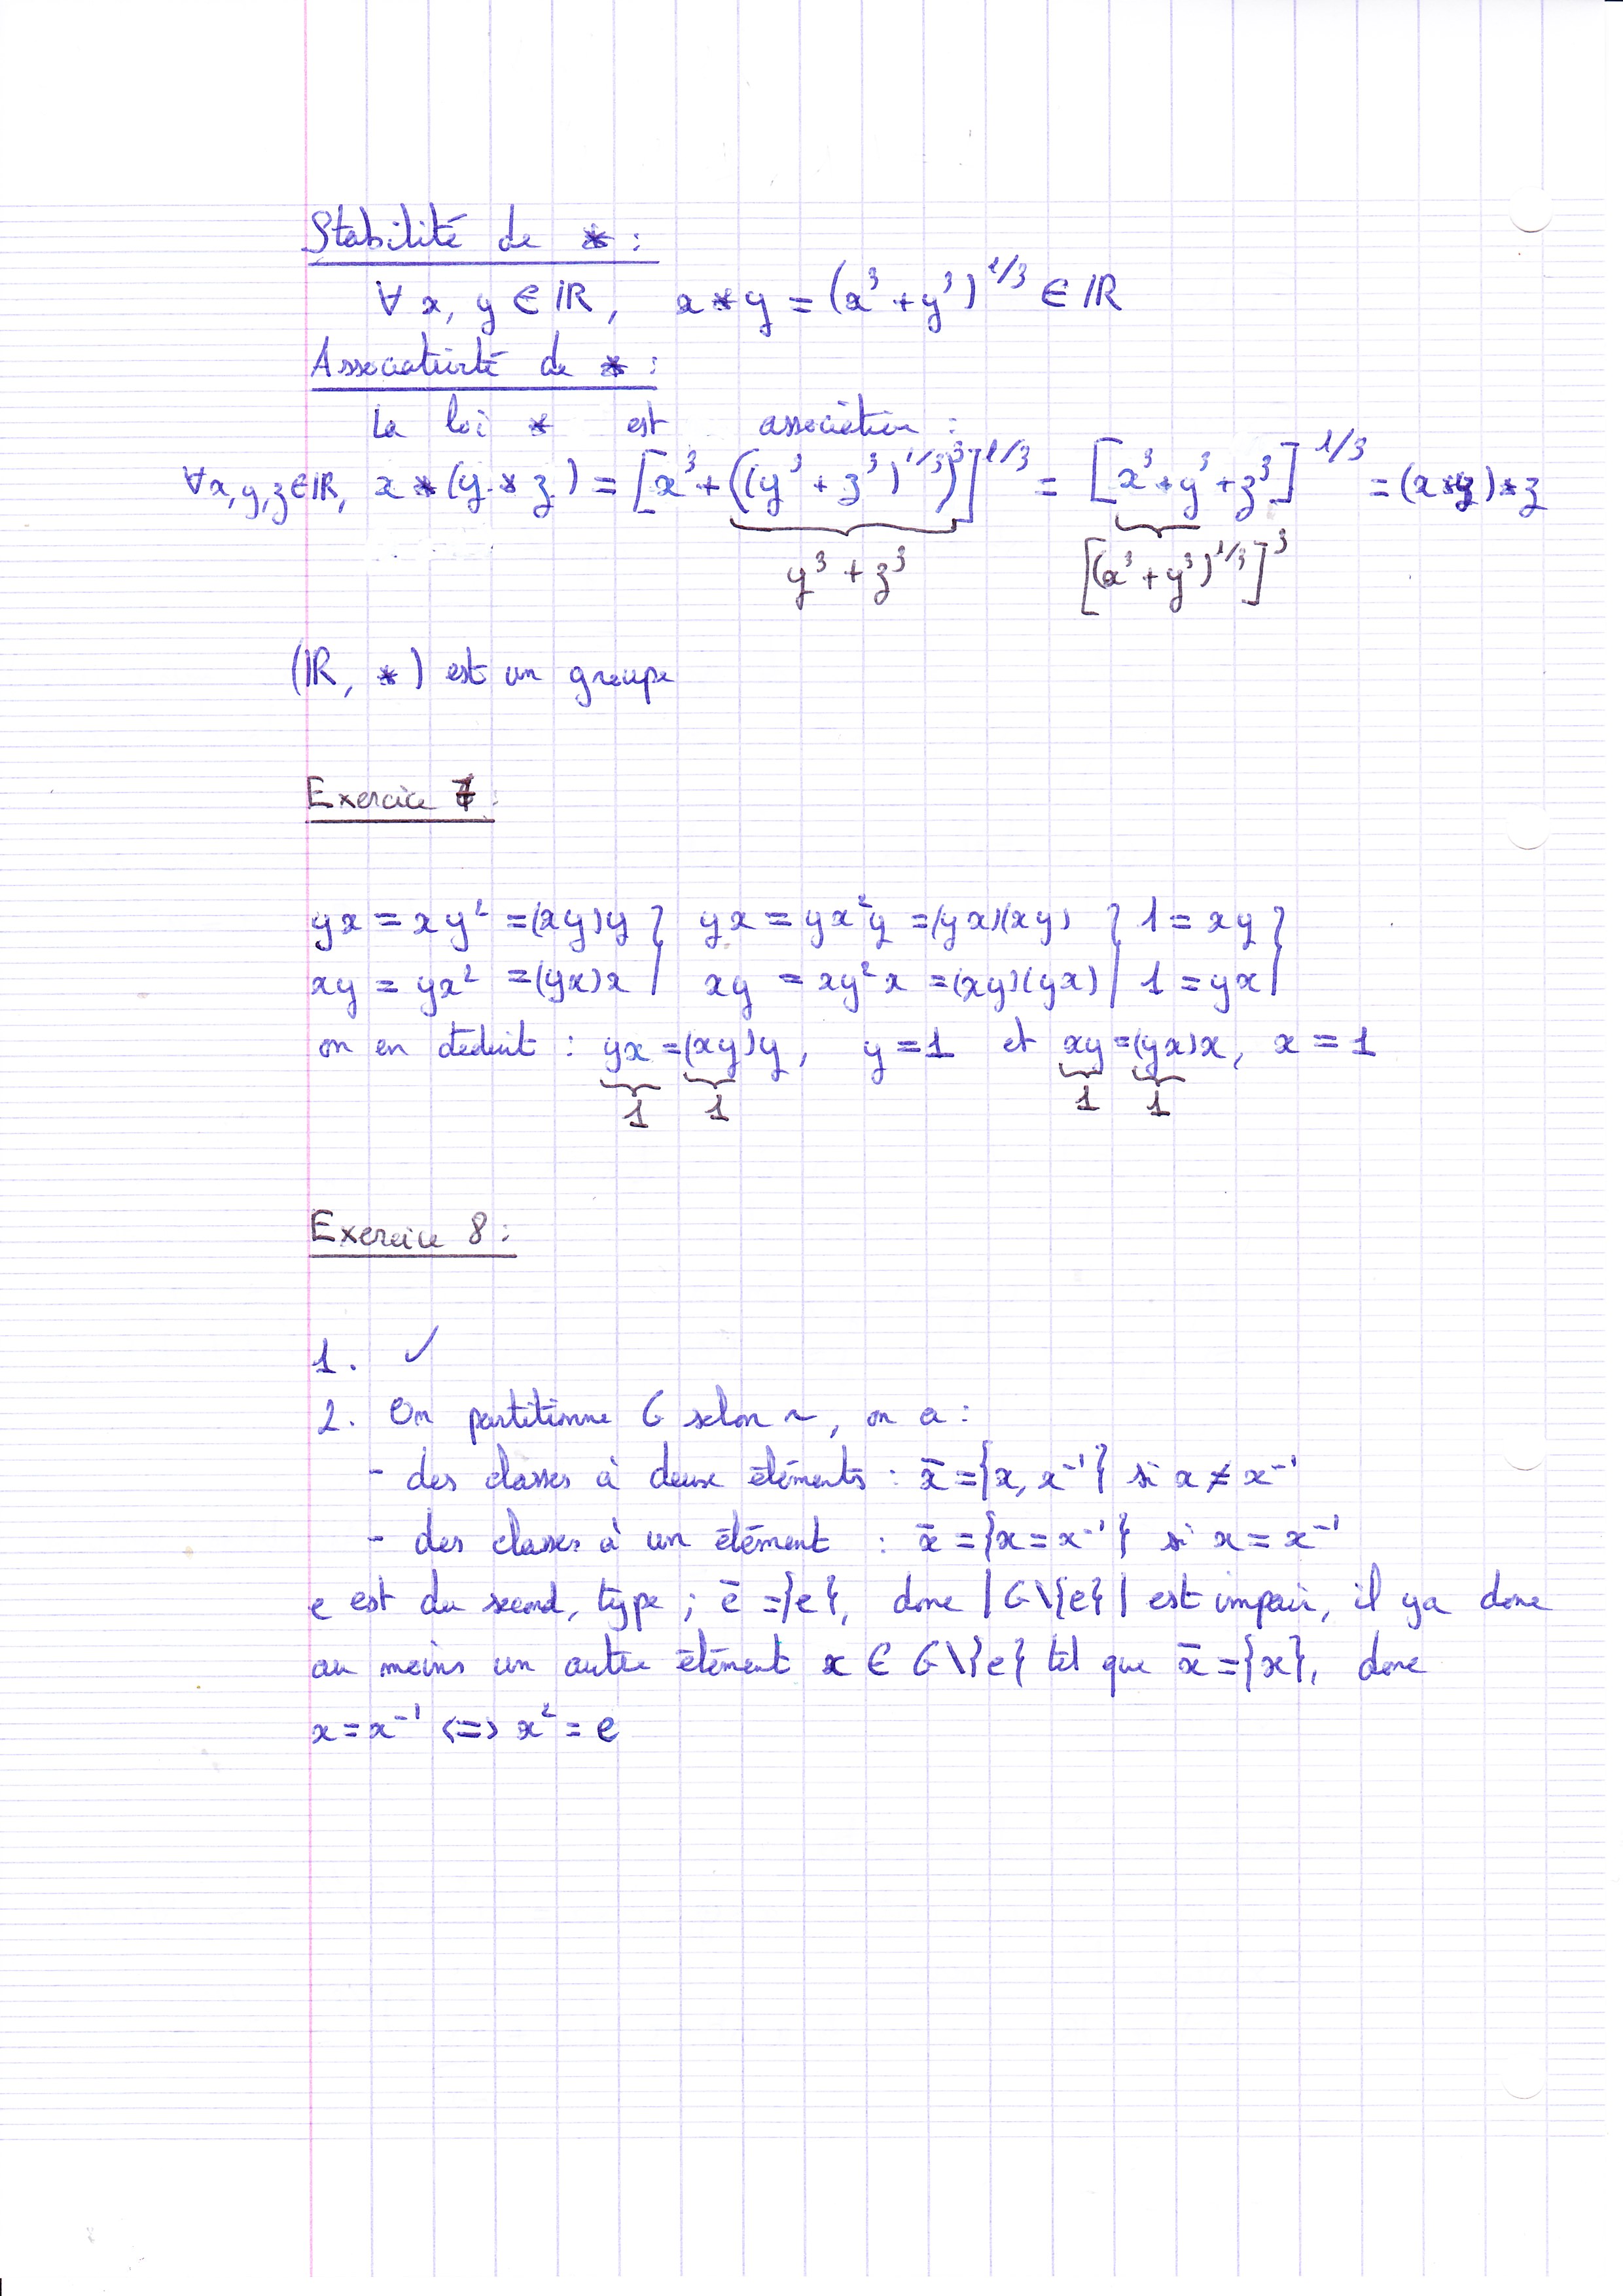 Stabilité de * :
∀ x, y ∈ IR, x * y = (x³ + y³)^1/3 ∈ IR
Associativité de * :
La loi * est :
∀x,y,z∈IR, x * (y * z) = [x³ + ((y³ + z³)^1/3)³]^1/3 = [x³ + y³ + z³]^1/3 = (x * y) * z
y³ + z³ [(x³ + y³)^1/3]³
(IR, *) est un groupe
Exercice 7 :
yx = xy² = (xy)y } yx = yx²y = (yx)(xy) } 1 = xy }
xy = yx² = (yx)x | xy = xy²x = (xy)(yx) | 1 = yx |
on en déduit : yx = (xy)y, y = 1 et xy = (yx)x, x = 1
1 1 1 1
Exercice 8 :
1. ✓
2. On partitionne G selon ~, on a :
- des classes à deux éléments : x̄ = {x, x⁻¹} si x ≠ x⁻¹
- des classes à un élément : x̄ = {x = x⁻¹} si x = x⁻¹
e est du second type ; ē = {e}, donc |G\{e}| est impair, il y a donc
au moins un autre élément x ∈ G\{e} tel que x̄ = {x}, donc
x = x⁻¹ <=> x² = e